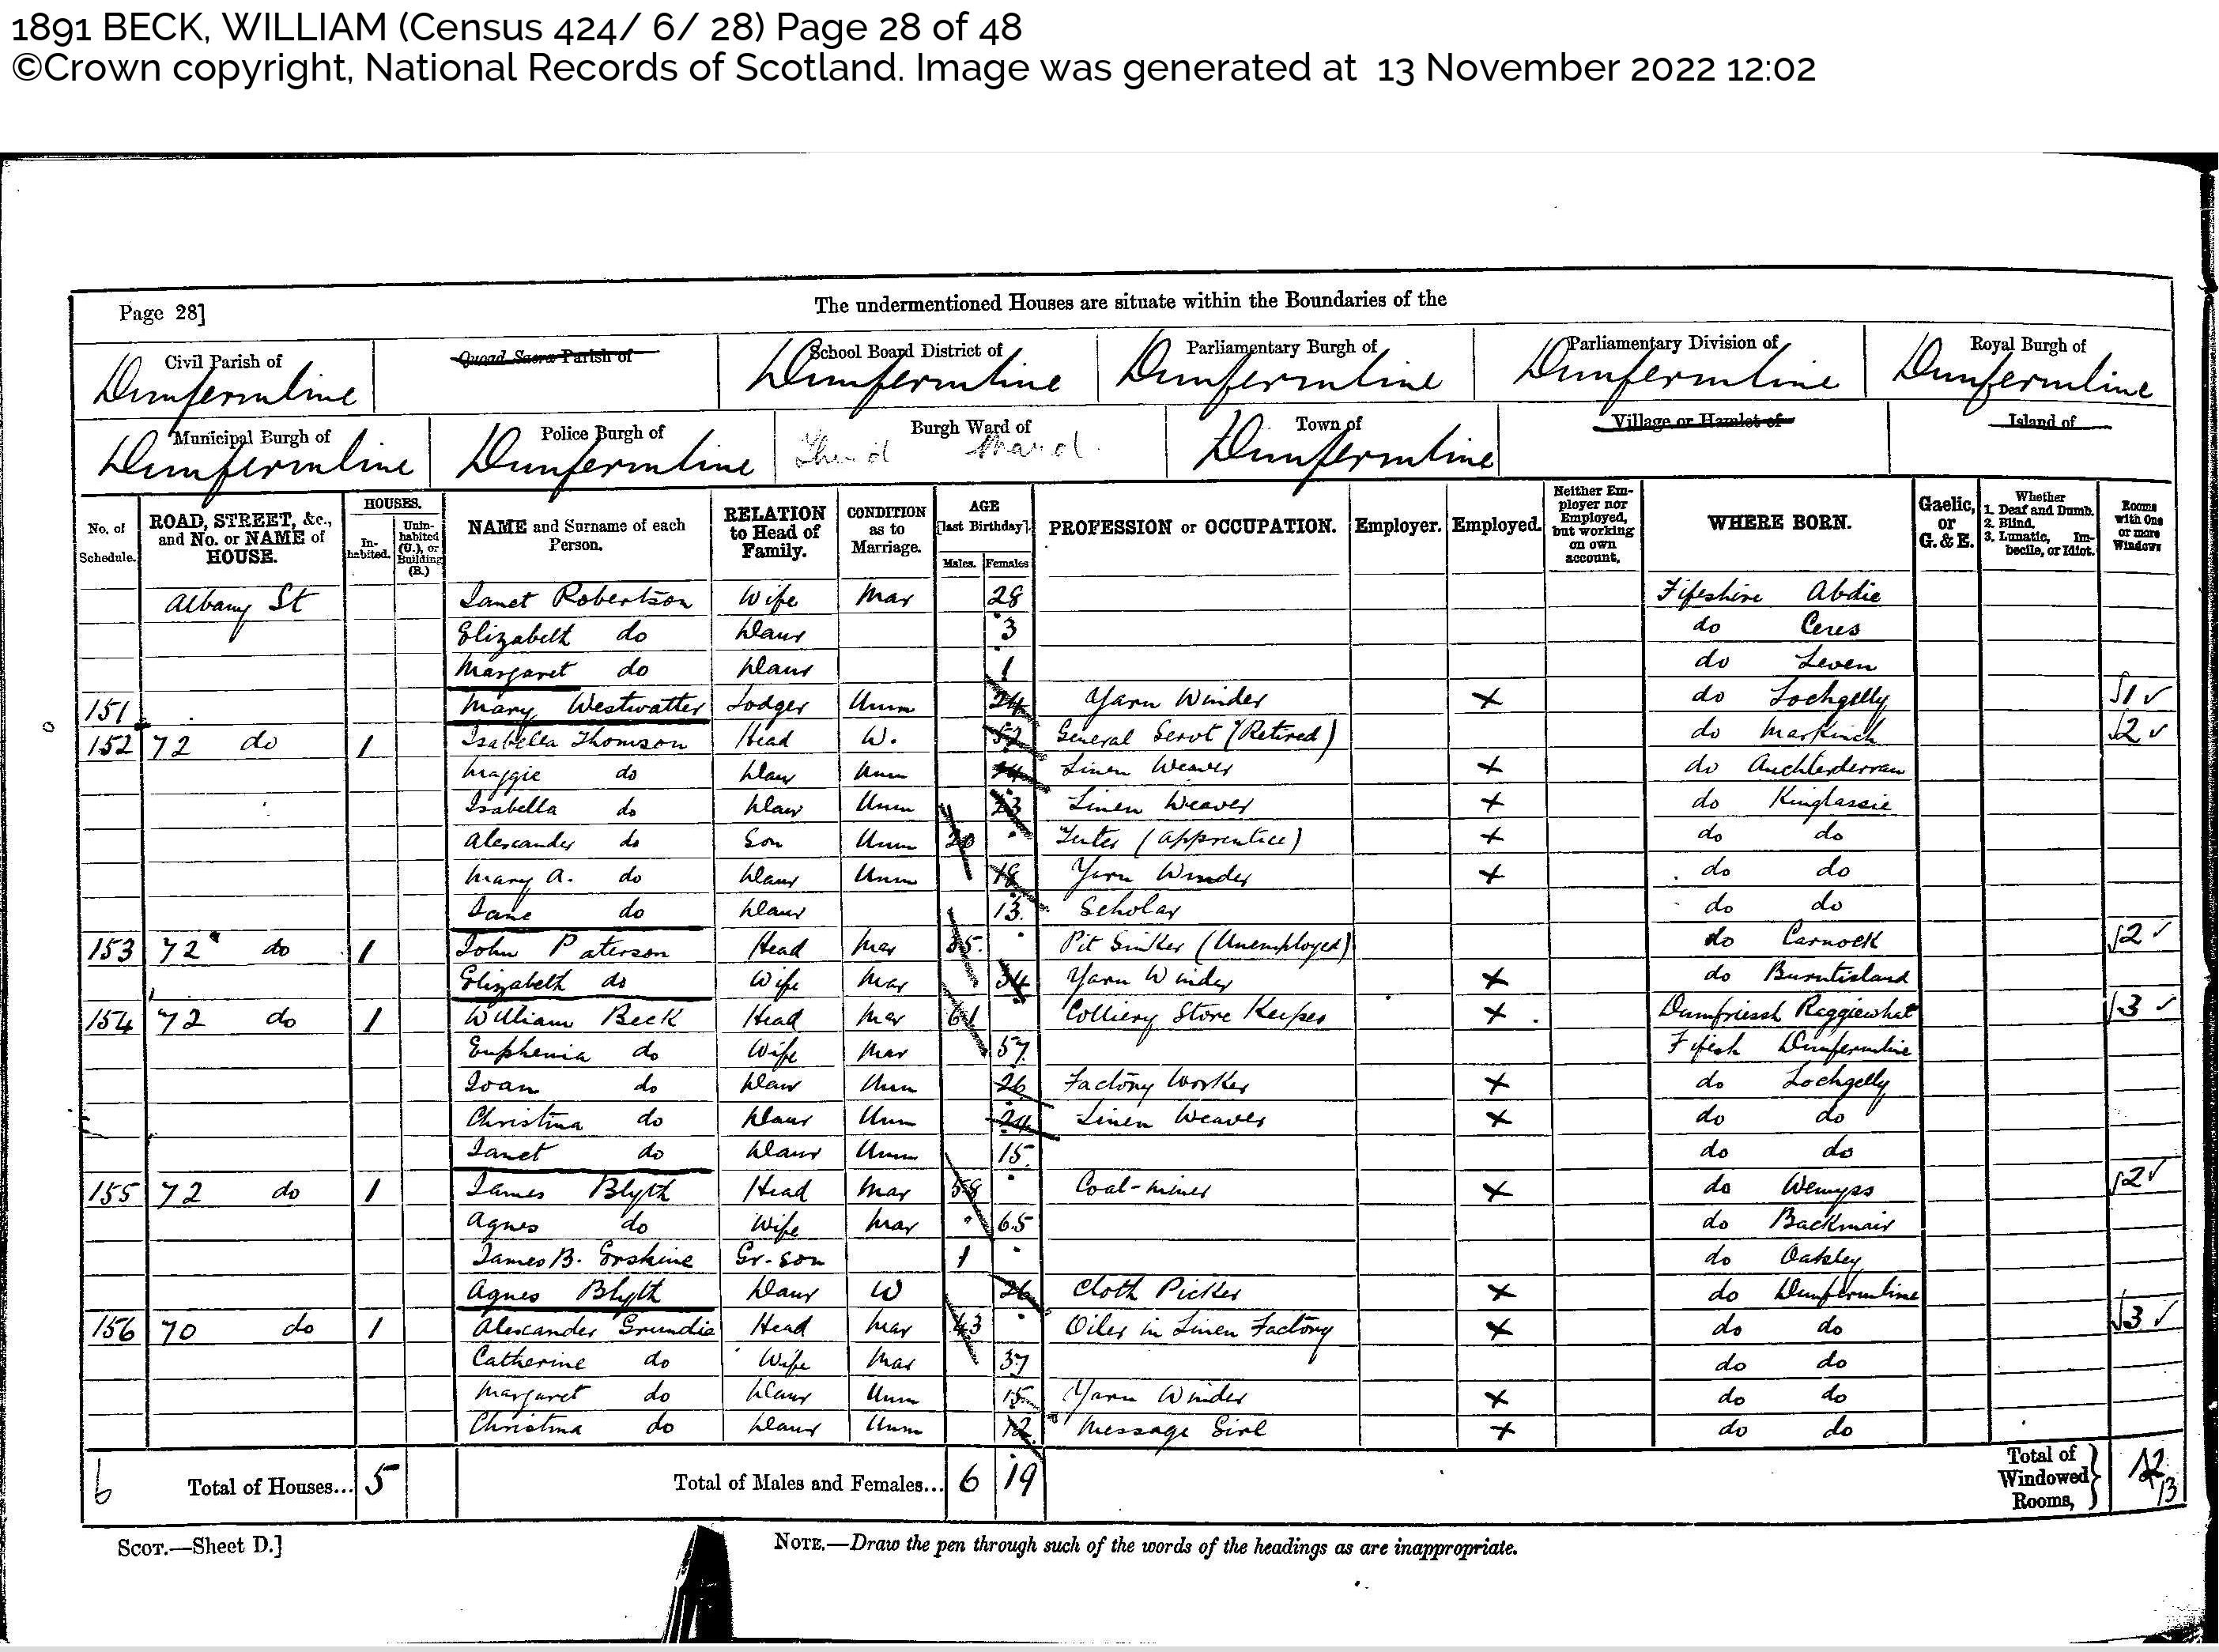 1891 BECK, WILLIAM (Census 424/ 6/ 28) Page 28 of 48
©Crown copyright, National Records of Scotland. Image was generated at 13 November 2022 12:02
Page 28]
The undermentioned Houses are situate within the Boundaries of the
Civil Parish of Quoad Sacra Parish of School Board District of Parliamentary Burgh of Parliamentary Division of Royal Burgh of
Dunfermline Dunfermline Dunfermline Dunfermline Dunfermline
Municipal Burgh of Police Burgh of Burgh Ward of Town of Village or Hamlet of Island of
Dunfermline Dunfermline Third Ward Dunfermline
No. of Schedule. ROAD, STREET, &c., and No. or NAME of HOUSE. HOUSES. Inhabited. Uninhabited (U.), or Building (B.) NAME and Surname of each Person. RELATION to Head of Family. CONDITION as to Marriage. AGE [last Birthday]. Males. Females PROFESSION or OCCUPATION. Employer. Employed. Neither Employer nor Employed, but working on own account. WHERE BORN. Gaelic, or G. & E. Whether 1. Deaf and Dumb. 2. Blind. 3. Lunatic, Imbecile, or Idiot. Rooms with One or more Windows
Albany St Janet Robertson Wife Mar 28 Fifeshire Abdie
Elizabeth do Daur 3 do Ceres
Margaret do Daur 1 do Leven
151 Mary Westwatter Lodger Unm 24 Yarn Winder X do Lochgelly 1 ✓
152 72 do 1 Isabella Thomson Head W. 52 General Servt (Retired) do Markinch 2 ✓
Maggie do Daur Unm 24 Linen Weaver X do Auchterderran
Isabella do Daur Unm 23 Linen Weaver X do Kinglassie
Alexander do Son Unm 20 Tenter (apprentice) X do do
Mary A. do Daur Unm 18 Yarn Winder X do do
Jane do Daur 13 Scholar do do
153 72 do 1 John Paterson Head Mar 35 Pit Sinker (Unemployed) do Carnock 2 ✓
Elizabeth do Wife Mar 34 Yarn Winder X do Burntisland
154 72 do 1 William Beck Head Mar 61 Colliery Store Keeper X Dumfriessh Raggiewhat 3 ✓
Euphemia do Wife Mar 57 Fifesh Dunfermline
Joan do Daur Unm 26 Factory Worker X do Lochgelly
Christina do Daur Unm 24 Linen Weaver X do do
Janet do Daur Unm 15 do do
155 72 do 1 James Blyth Head Mar 58 Coal-miner X do Wemyss 2 ✓
Agnes do Wife Mar 65 do Backmair
James B. Erskine Gr-son 1 do Oakley
Agnes Blyth Daur W 26 Cloth Picker X do Dunfermline
156 70 do 1 Alexander Grundie Head Mar 43 Oiler in Linen Factory X do do 3 ✓
Catherine do Wife Mar 37 do do
Margaret do Daur Unm 15 Yarn Winder X do do
Christina do Daur Unm 12 Message Girl X do do
6 Total of Houses... 5 Total of Males and Females... 6 19 Total of Windowed Rooms, 12 13
SCOT.—Sheet D.]
NOTE.—Draw the pen through such of the words of the headings as are inappropriate.